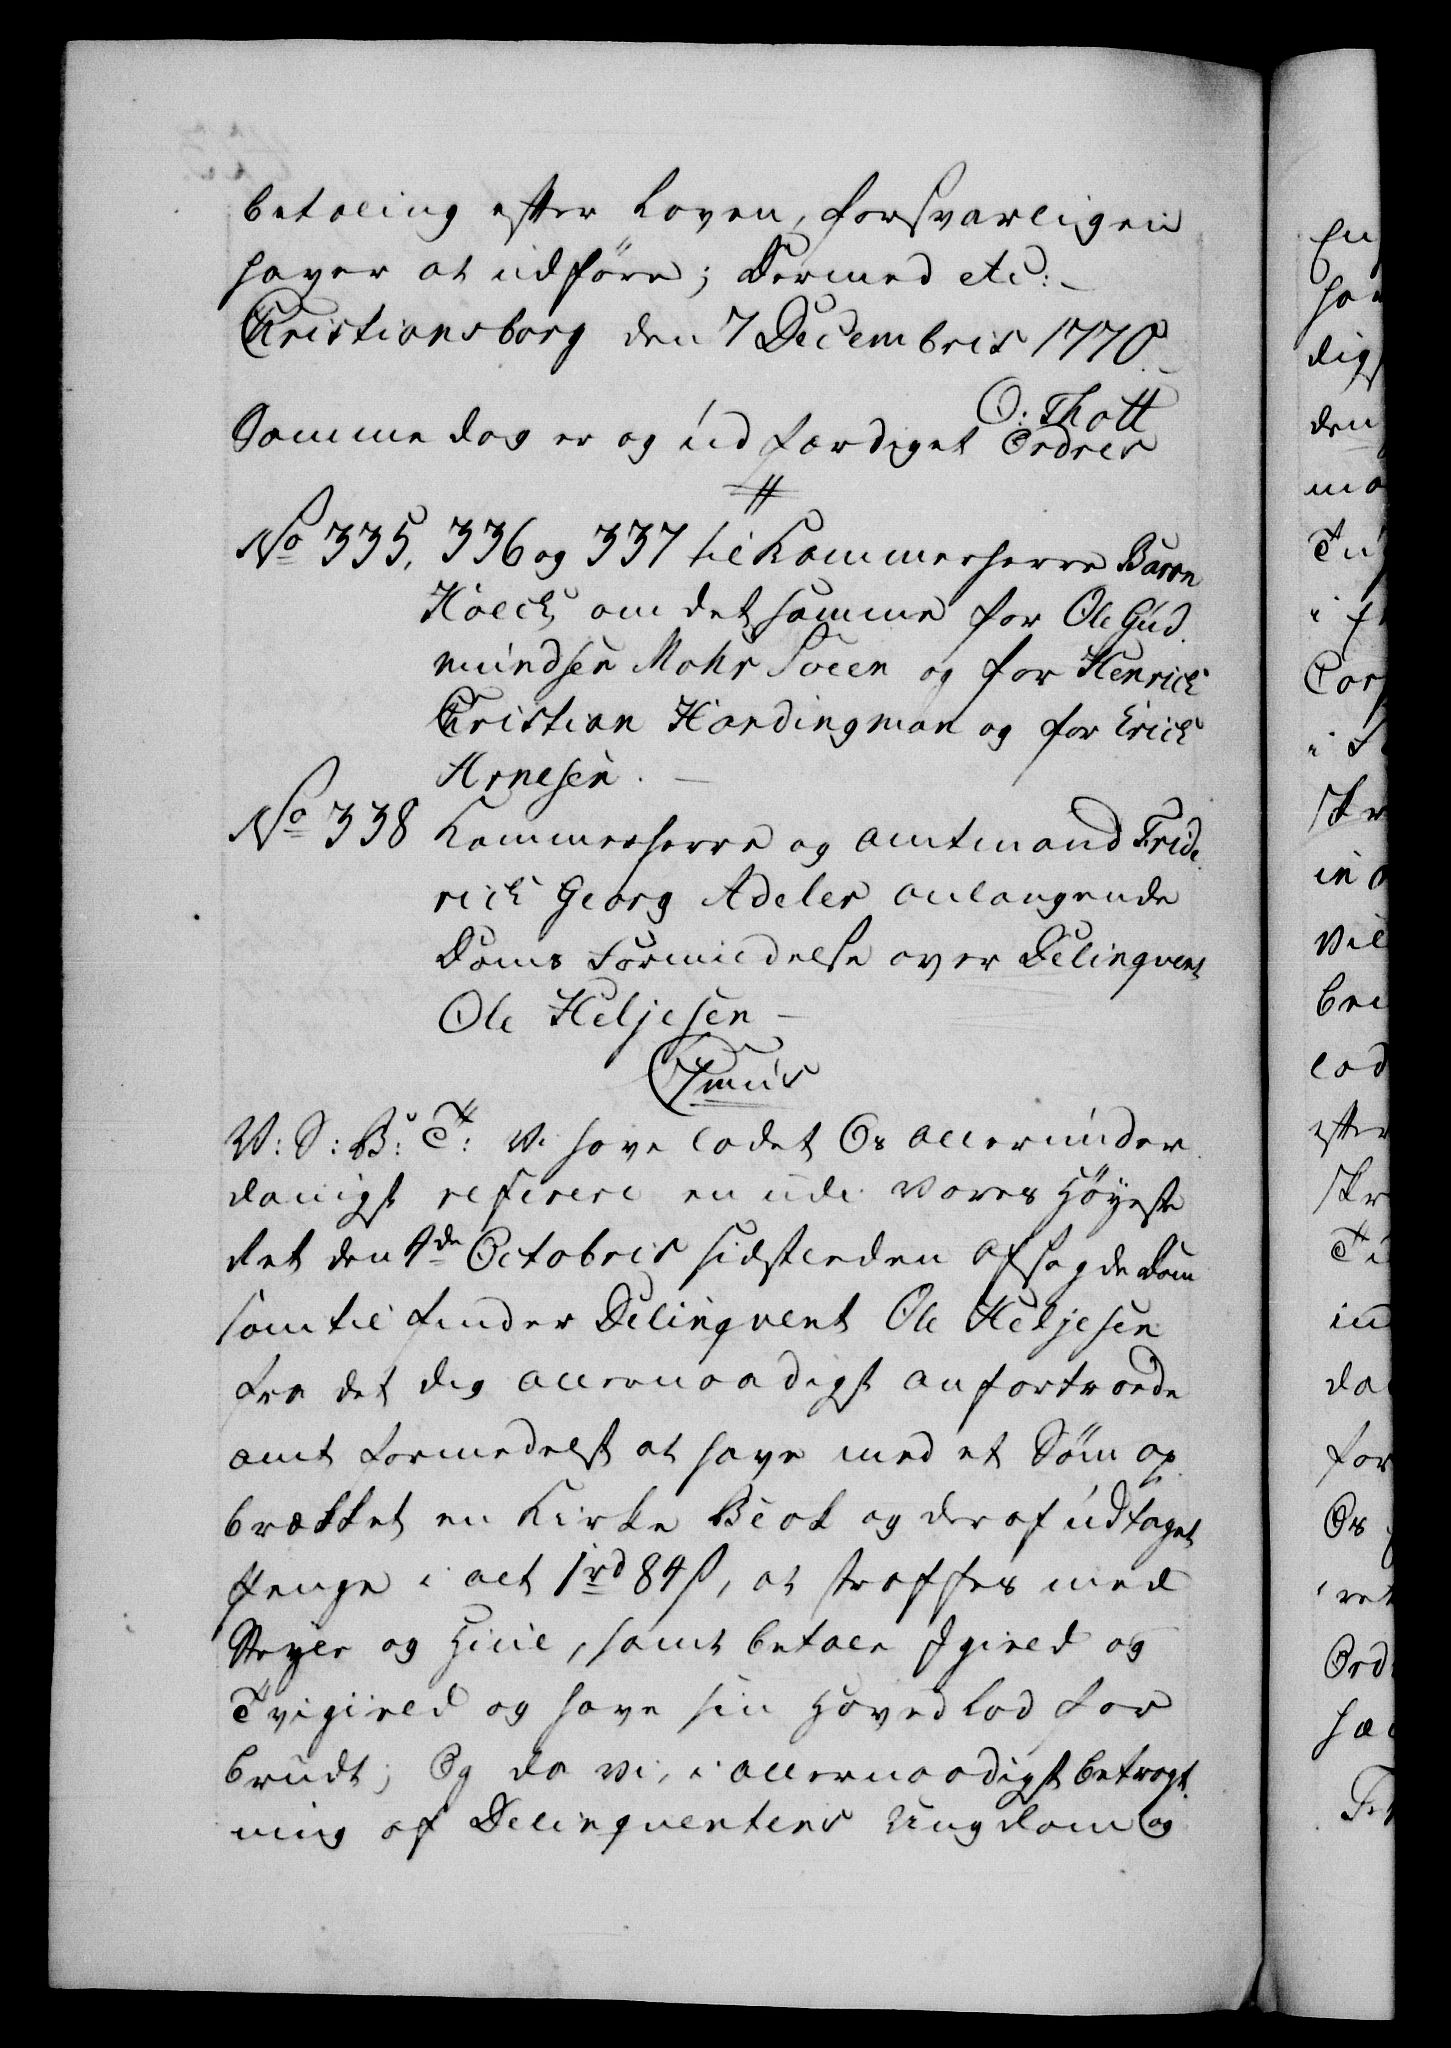 betaling efter Loven, forsvarligen
haver at udföre; Dermed etc: -
Christiansborg den 7 Decembris 1770.
O: Thott
Samme dag er og udfærdiget Ordres
No 335, 336 og 337 til Kammerherre Baron
Holck, om det samme for Ole Gud
mundsen Mohr Soeen og for Henrich
Christian Hardingman og for Erich
Arnesen. -
No 338 Kammerherre og Amtmand Fride
rich Georg Adeler anlangende
Doms Formildelse over Delinqvent
Ole Heljesen -
C7mus
V: S: B: T: Vi have ladet Os allerunder
danigst referere en udi Vores Höyeste
Ret den 4de Octobris sidstleden afsagde Dom
som tilfinder Delinqvent Ole Heljesen
fra det dig allernaadigst anfortroede
Amt formedelst at have med et Söm op
brækket en Kirke Blok og deraf udtaget
Penge i alt 1 rd 84 s, at straffes med
Steyle og Hiul, samt betale Igield og
Tvigield og have sin Hoved Lod for
brudt; Og da Vi, i allernaadigst betragt
ning af Delinqventens Ungdom og
En
ha
dig
den
ma
Til
i
Cor
i
Skr
in
Vil
bre
lad
efter
Skr
Ti
ind
da
for
Os
ret
Ord
hæ
Fr